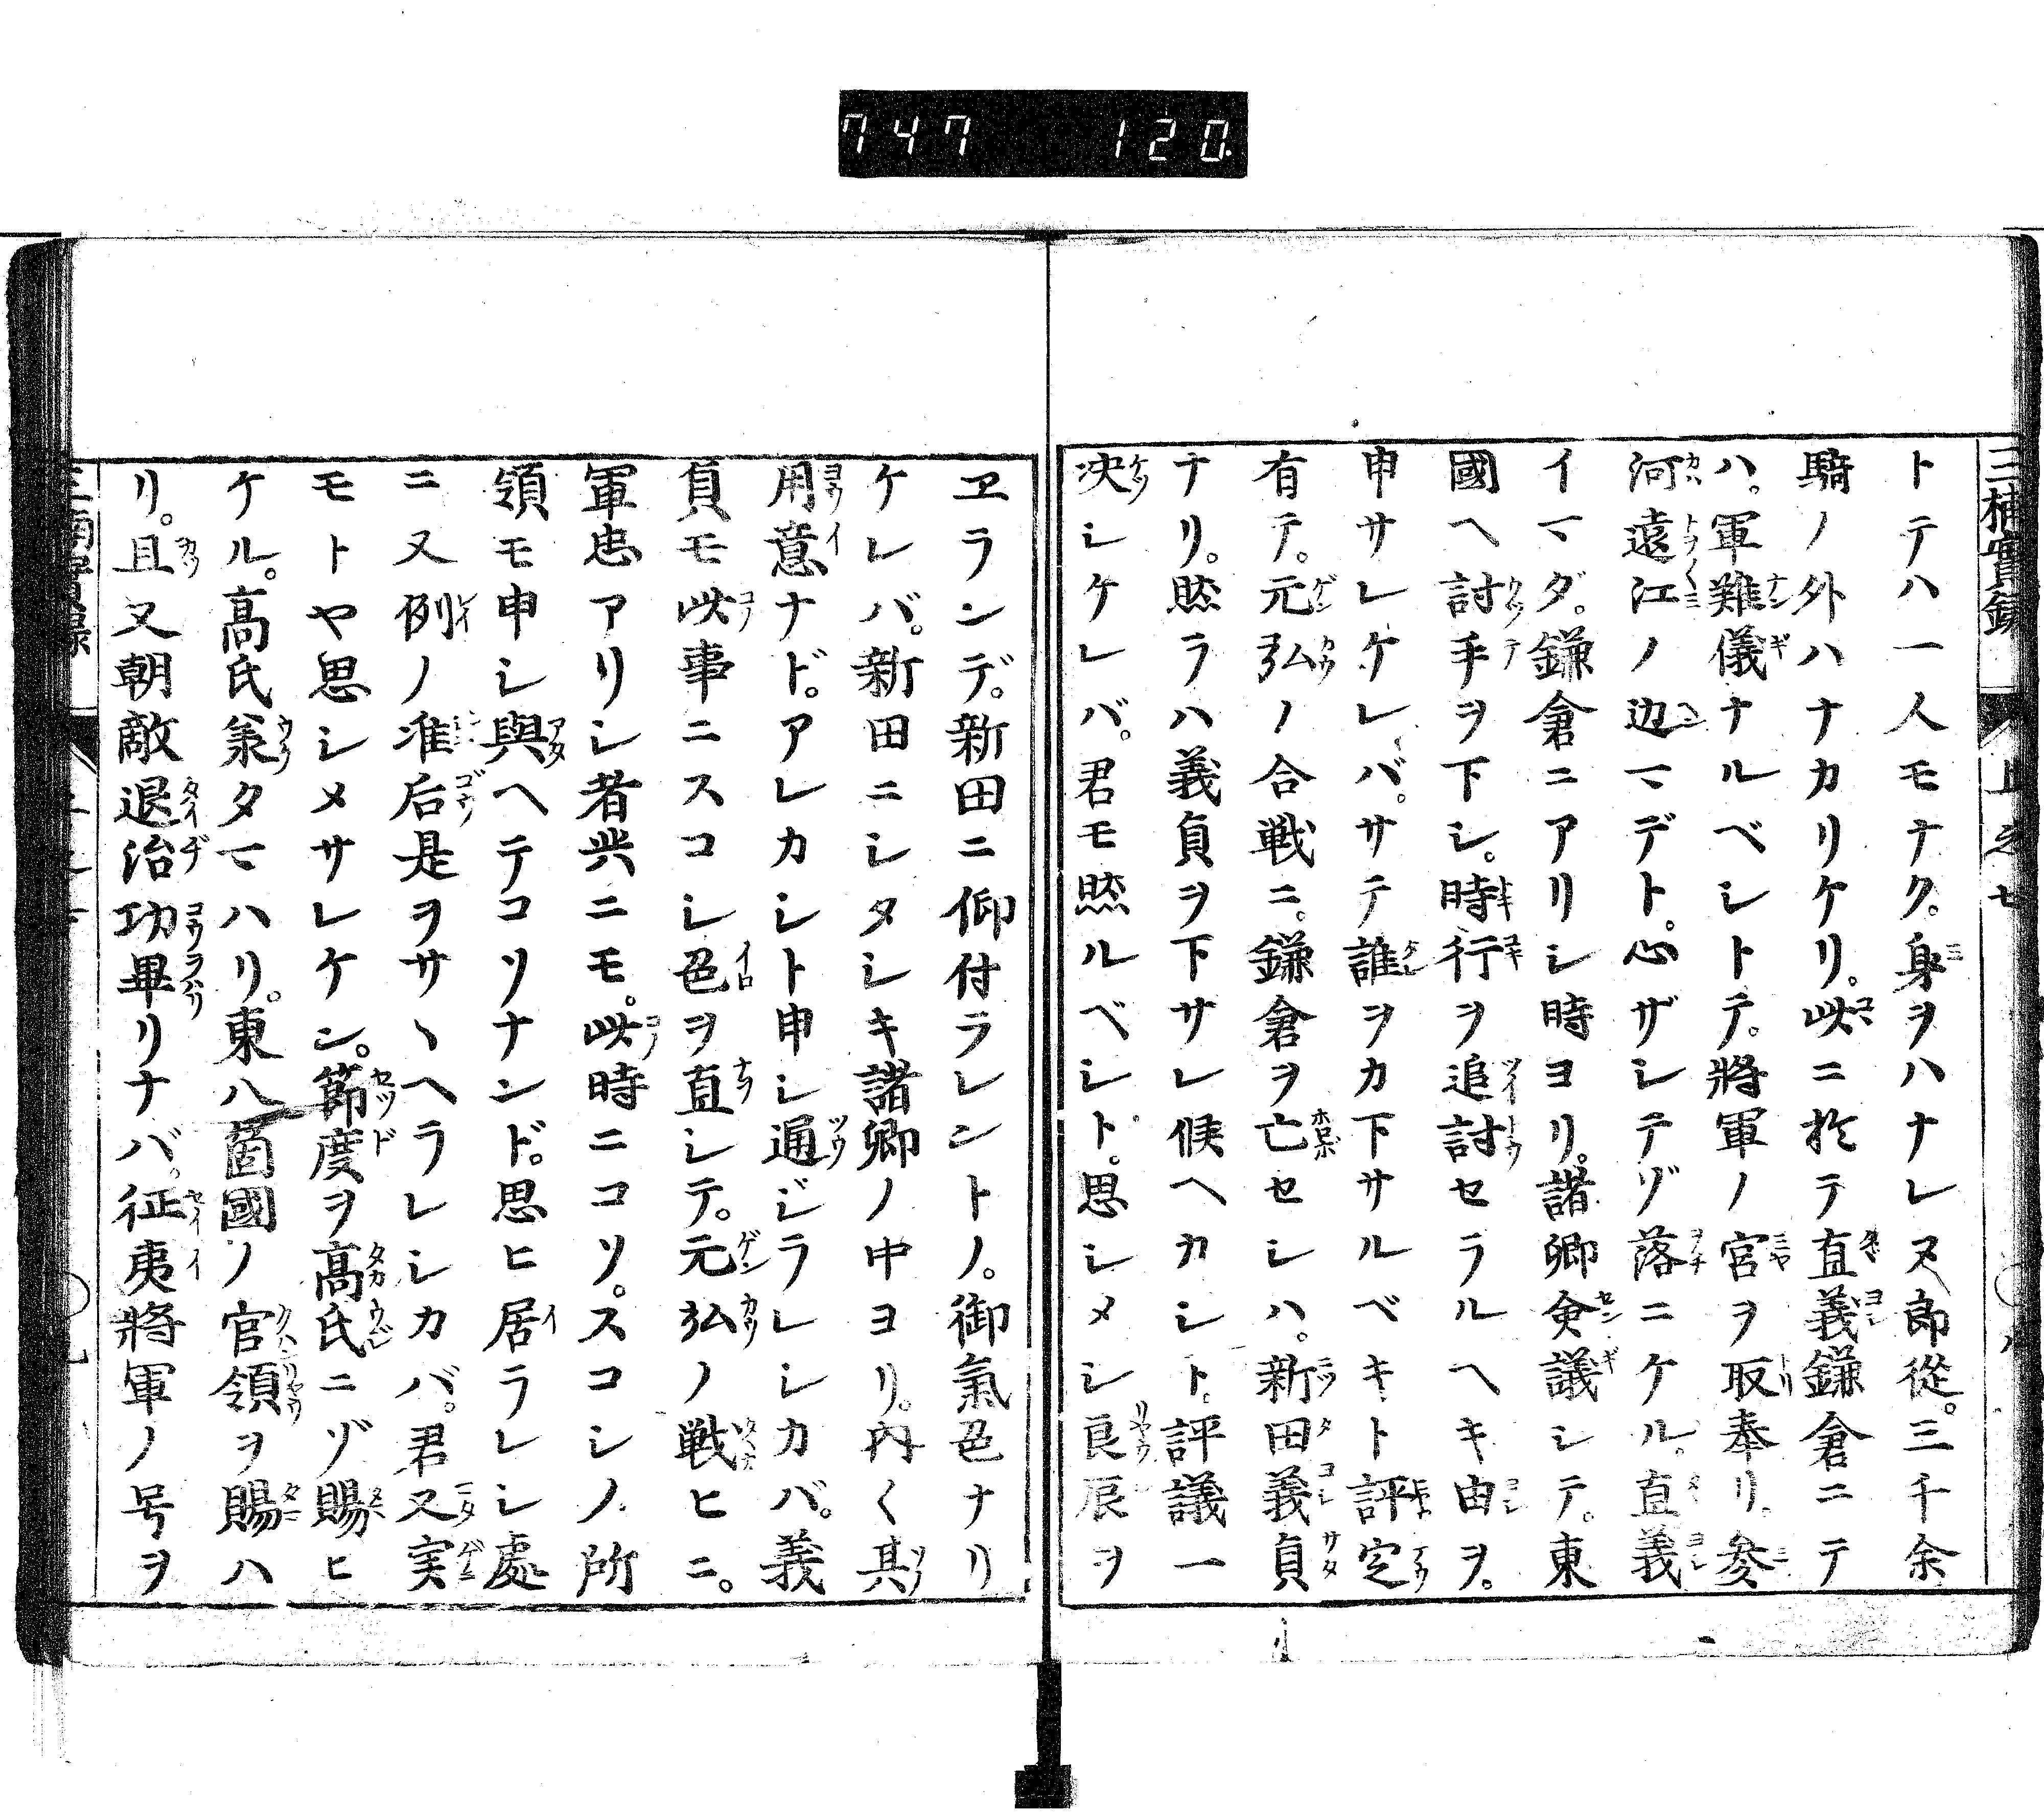 747 120
三楠實録
トテハ一人モナク。身ヲハナレヌ郎從。三千余
騎ノ外ハナカリケリ。此ニ於テ直義鎌倉ニテ
ハ。軍難儀ナルベシトテ。將軍ノ宮ヲ取奉リ。参
河遠江ノ辺マデト。心ザシテゾ落ニケル。直義
イマダ。鎌倉ニアリシ時ヨリ。諸卿僉議シテ。東
國ヘ討手ヲ下シ。時行ヲ追討セラルヘキ由ヲ。
申サレケレバ。サテ誰ヲカ下サルベキト評定
有テ。元弘ノ合戦ニ。鎌倉ヲ亡セシハ。新田義貞
ナリ。然ラハ義貞ヲ下サレ候ヘカシト。評議一
决シケレバ。君モ然ルベシト。思シメシ良辰ヲ
ヱランデ。新田ニ仰付ラレントノ。御氣色ナリ
ケレバ。新田ニシタシキ諸卿ノ中ヨリ。内〱其
用意ナド。アレカシト申シ通ジラレシカバ。義
貞モ此事ニスコシ色ヲ直シテ。元弘ノ戦ヒニ。
軍忠アリシ者共ニモ。此時ニコソ。スコシノ所
領モ申シ與ヘテコソナンド。思ヒ居ラレシ處
ニ又例ノ准后是ヲサヽヘラレシカバ。君又実
モトヤ思シメサレケン。節度ヲ高氏ニゾ賜ヒ
ケル。高氏羕タマハリ。東八箇國ノ官領ヲ賜ハ
リ。且又朝敵退治功畢リナバ。征夷將軍ノ号ヲ